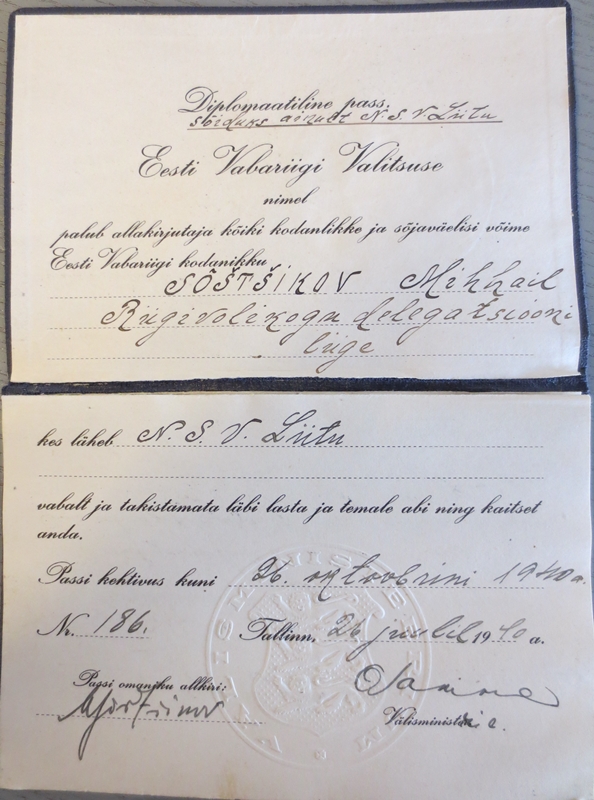 Diplomaatiline pass.
sõiduks ainult N. S. V. Liitu
Eesti Vabariigi Valitsuse
nimel
palub allakirjutaja kõiki kodanlikke ja sõjaväelisi võime
Eesti Vabariigi kodanikku
SÕŠTŠIKOV Mihhail
Riigivolikogu delegatsiooni
liige
kes läheb N. S. V. Liitu
vabalt ja takistamata läbi lasta ja temale abi ning kaitset
anda.
Passi kehtivus kuni 26. oktoobrini 1940 a.
Nr. 186. Tallinn, 26. juulil 1940 a.
Passi omaniku allkiri:
Välisministri a.